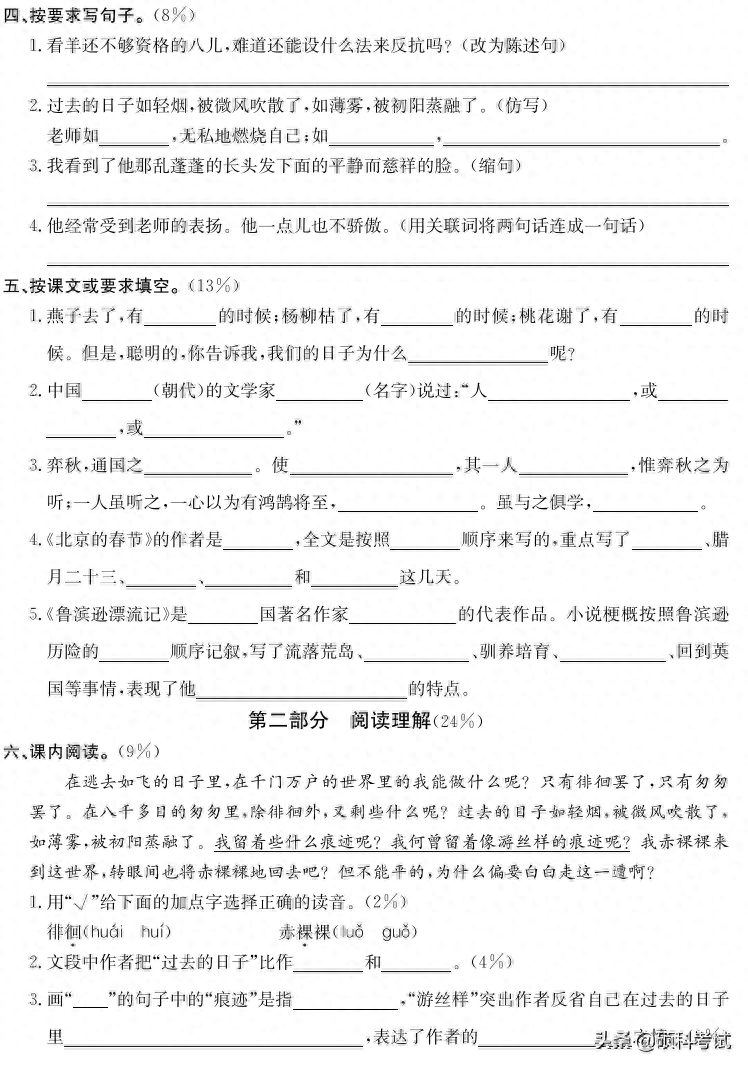 四、按要求写句子。(8%)
1. 看羊还不够资格的八儿,难道还能设什么法来反抗吗?(改为陈述句)
2. 过去的日子如轻烟,被微风吹散了,如薄雾,被初阳蒸融了。(仿写)
老师如________,无私地燃烧自己;如____________,________________________________。
3. 我看到了他那乱蓬蓬的长头发下面的平静而慈祥的脸。(缩句)
4. 他经常受到老师的表扬。他一点儿也不骄傲。(用关联词将两句话连成一句话)
五、按课文或要求填空。(13%)
1. 燕子去了,有________的时候;杨柳枯了,有________的时候;桃花谢了,有________的时
候。但是,聪明的,你告诉我,我们的日子为什么________________呢?
2. 中国________(朝代)的文学家__________(名字)说过:“人________________,或________
________,或________________。”
3. 弈秋,通国之____________。使__________________,其一人____________,惟弈秋之为
听;一人虽听之,一心以为有鸿鹄将至,________________。虽与之俱学,____________。
4.《北京的春节》的作者是________,全文是按照________顺序来写的,重点写了________、腊
月二十三、________、__________和__________这几天。
5.《鲁滨逊漂流记》是________国著名作家____________的代表作品。小说梗概按照鲁滨逊
历险的________顺序记叙,写了流落荒岛、____________、驯养培育、____________、回到英
国等事情,表现了他________________________的特点。
第二部分 阅读理解(24%)
六、课内阅读。(9%)
在逃去如飞的日子里,在千门万户的世界里的我能做什么呢?只有徘徊罢了,只有匆匆
罢了。在八千多日的匆匆里,除徘徊外,又剩些什么呢?过去的日子如轻烟,被微风吹散了,
如薄雾,被初阳蒸融了。我留着些什么痕迹呢?我何曾留着像游丝样的痕迹呢?我赤裸裸来
到这世界,转眼间也将赤裸裸地回去吧?但不能平的,为什么偏要白白走这一遭啊?
1. 用“√”给下面的加点字选择正确的读音。(2%)
徘徊(huái huí) 赤裸裸(luǒ guǒ)
2. 文段中作者把“过去的日子”比作________和________。(4%)
3. 画“____”的句子中的“痕迹”是指____________,“游丝样”突出作者反省自己在过去的日子
里__________________________________,表达了作者的______________
头条@硕科考试